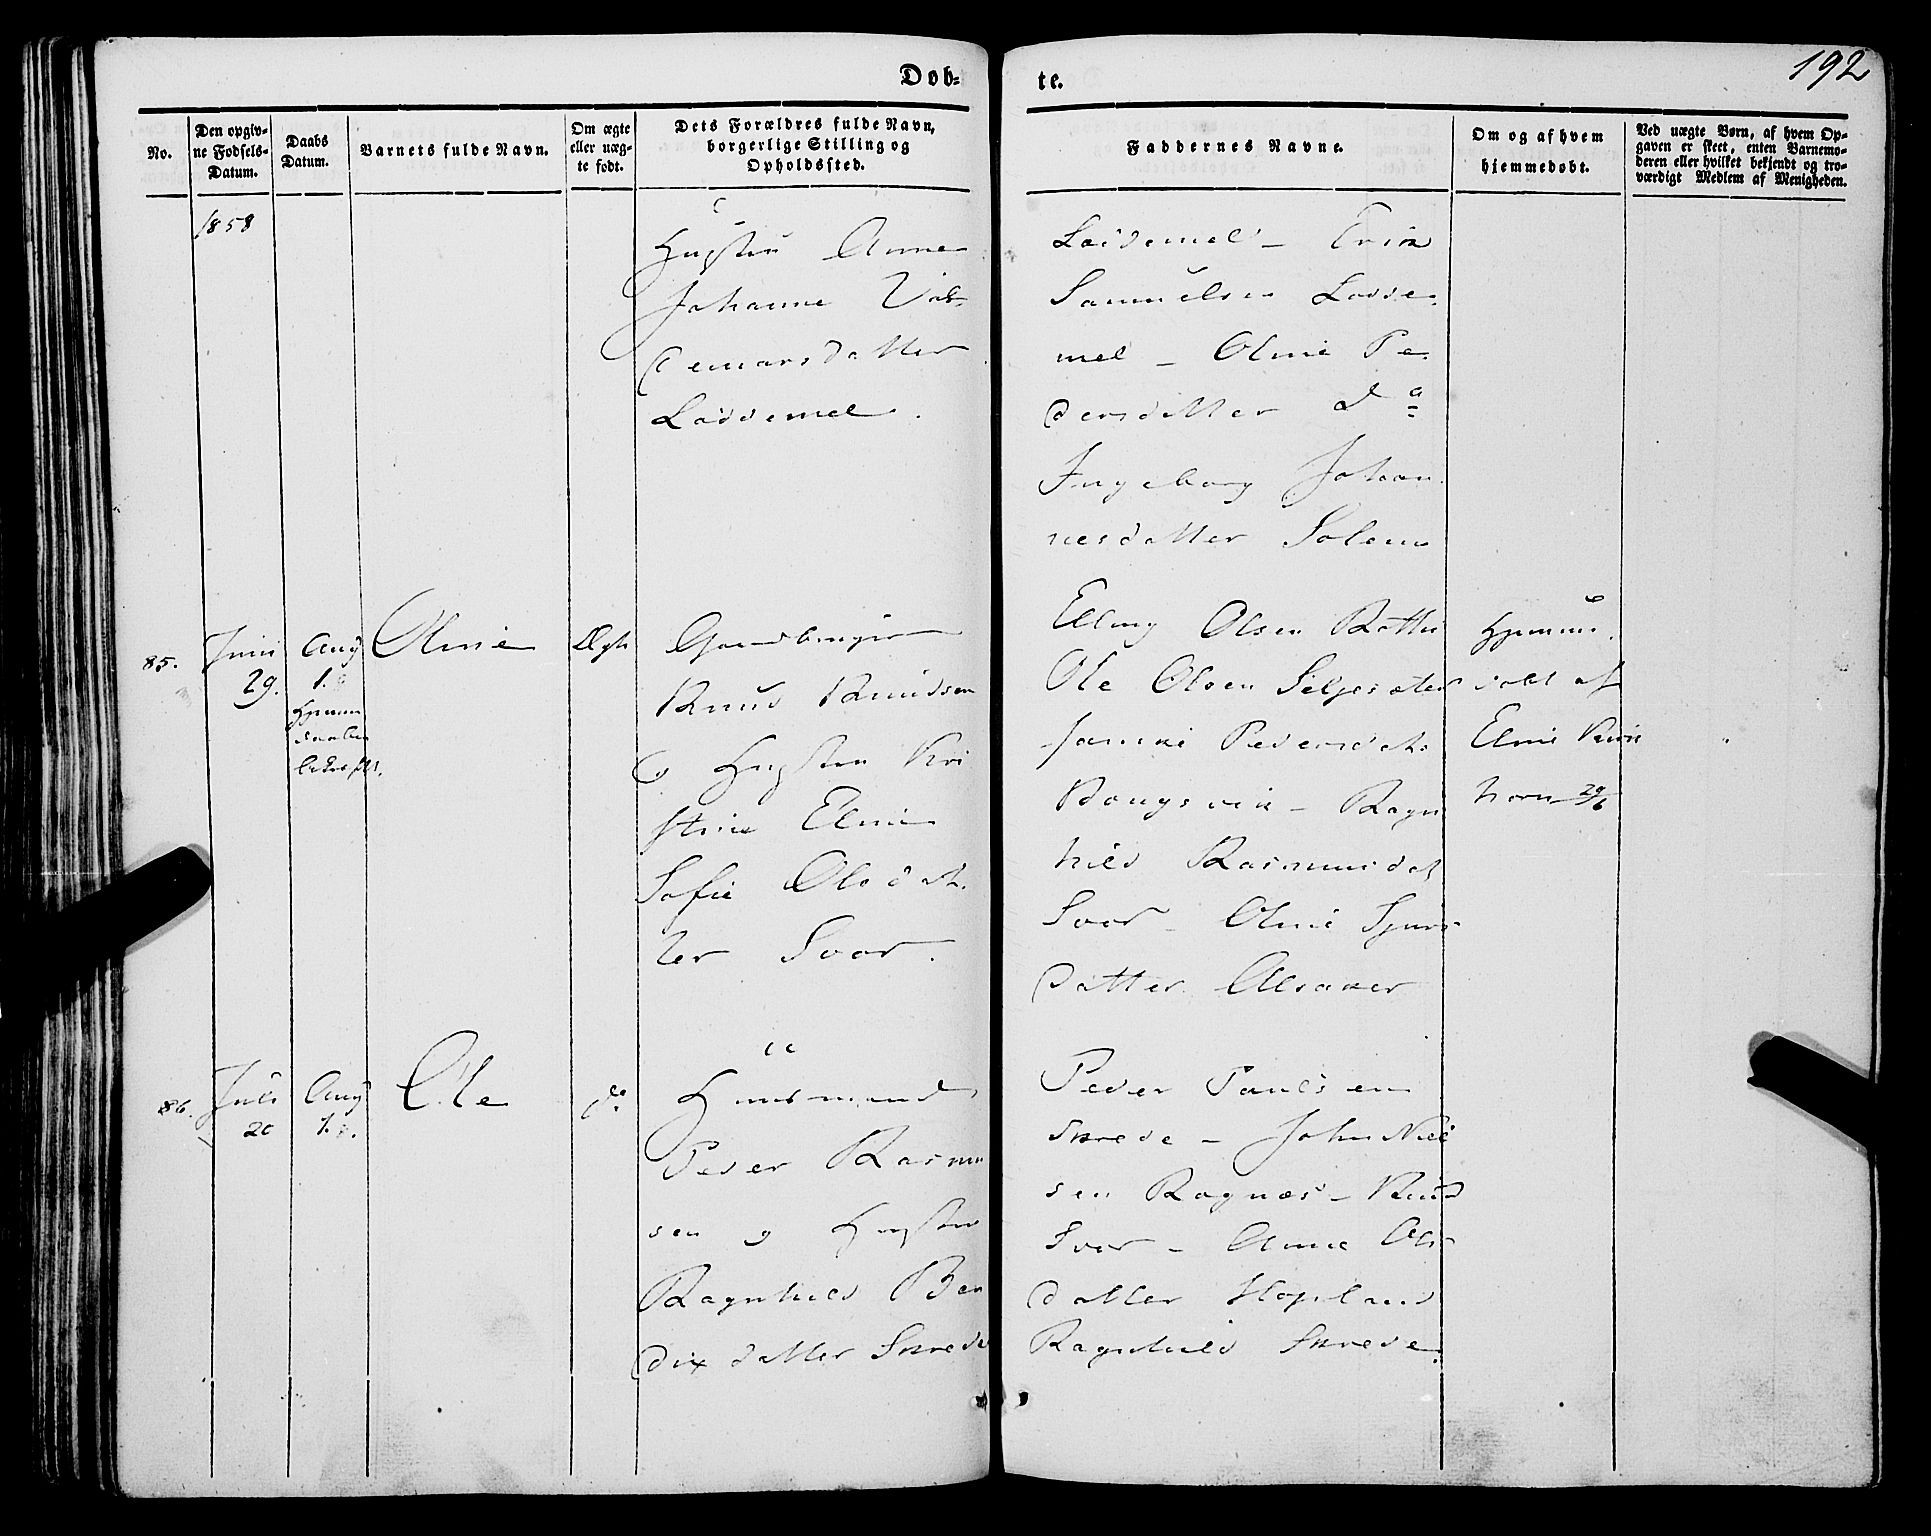 Døb-
te.
192
No.
Den opgiv-
ne Fødsels-
Datum.
Daabs
Datum.
Barnets fulde Navn.
Om ægte
eller uæg-
te født.
Dets Forældres fulde Navn,
borgerlige Stilling og
Opholdssted.
Faddernes Navne.
Om og af hvem
hjemmedøbt.
Ved uægte Børn, af hvem Op-
gaven er skeet, enten Barnemo-
deren eller hvilket bekjendt og tro-
værdigt Medlem af Menigheden.
1858
Hustru Anne
Johanne Val-
demarsdatter
Loddemel.
Loddemel - Erik
Samuelsen Lodde-
mel - Oline Pe-
dersdatter do
Ingeborg Johan-
nesdatter Solem
85.
Juni
29.
Aug
1.
Hjemme
daaben
bekræft.
Oline
Ægte
Gaardbruger
Knud Knudsen
og Hustru Kri
stine Eline
Sofie Olsdat-
ter Svor.
Elling Olsen
Ole Olsen Seljesæter
Pedersdat.
- Ragn
hild Rasmusdat
Svor - Oline Sjurs
datter Alsaker
Hjemme-
døbt af
Eline
29/6
86.
Juli
20
Aug
1.
Ole
do
Huusmand
Peder Rasmu
sen og Hustru
Ragnhild Ben
dixdatter Skrede
Peder Paulsen
Skrede - John Niel
sen Ragnæs - Knud
Svor - Anne Ols
datter Hopland
Ragnhild Skrede.